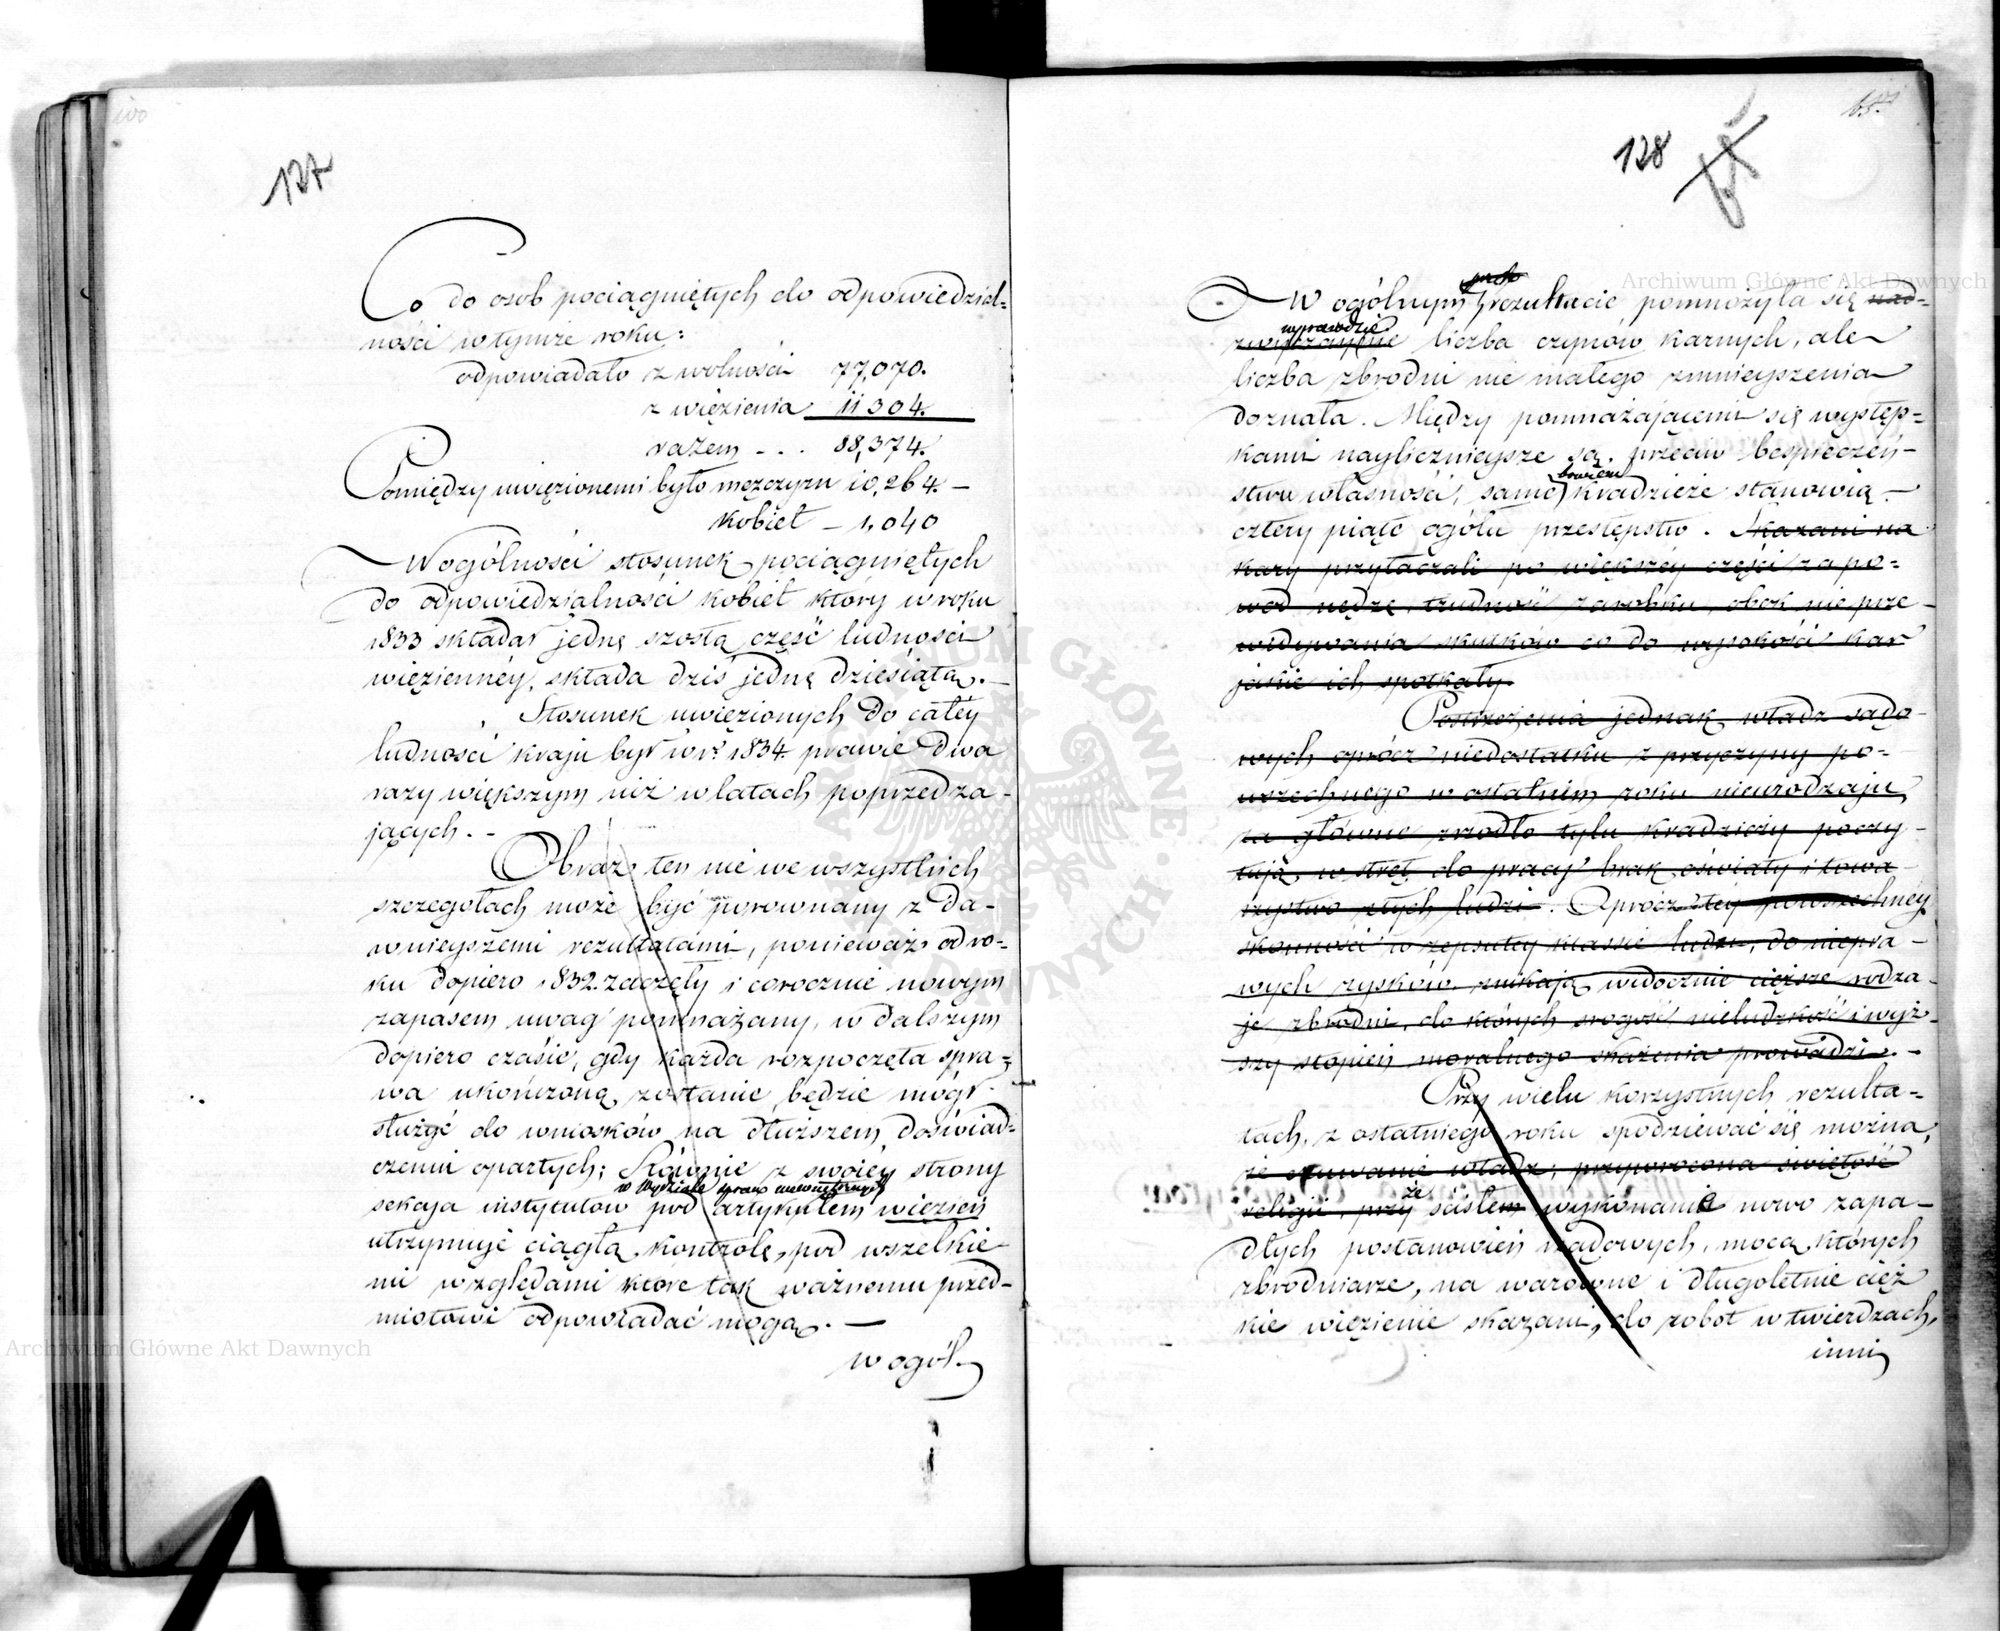 127
Co do osob pociągniętych do odpowiedzial=
ności w tymże roku:
odpowiadało z wolności 77,070.
z więzienia 11 304.
razem - . . 88,374.
Pomiędzy uwięzionemi było mężczyzn 10,264. –
Kobiet – 1,040
W ogólności stosunek pociągniętych
do odpowiedzialności kobiet który w roku
1833 składał jednę szóstą część ludności
więziennéy, składa dziś jednę dziesiątą. –
Stosunek uwięzionych do całéy
ludności kraju był w r. 1834 prawie dwa
razy większym niż w latach poprzedza-
jących. -
Obraz ten nie we wszystkich
szczegołach może być porownany z da-
wnieyszemi rezultatami, ponieważ od ro=
ku dopiero 1832. zaczęty i corocznie nowym
zapasem uwag pomnażany, w dalszym
dopiero czasie, gdy każda rozpoczęta spra=
wa ukończoną zostanie, będzie mógł
służyć do wniosków na dłuższem doświad=
czeniu opartych; Równie z swoiéy strony
w Wydziale spraw wewnętrznych
sekcja instytutów pod artykułem więzień
utrzymuje ciągłą kontrolę, pod wszelkie-
mi względami które tak ważnemu przed-
miotowi odpowiadać mogą. —
w ogól.
128
W ogólnym rezultacie pomnożyła się nad=
wprawdzie
zwyczaynie liczba czynów karnych, ale
liczba zbrodni nie małego zmnieyszenia
doznała. Między pomnażającemi się występ=
kami nayliczniejsze są przeciw bespieczeń-
bowiem
stwu własności, same kradzieże stanowią –
cztery piąte ogółu przestępstw. Skazani na
kary przytaczali po większéy części za po=
wod nędzę, trudność zarobku, obok nie prze-
widywania skutków co do wysokości kar
jakie ich spotkały.
Postrzeżenia jednak władz sądo-
wych oprócz niedostatku z przyczyny po-
wszechnego w ostatnim roku nieurodzaju,
za główne zrzodło tylu kradzieży poczy-
tują, wstręt do pracy brak oświaty i towa-
rzystwo złych ludzi. Oprocz téy powszechnéy
skłonności w zepsutey klassie ludu, do niepra-
wych zysków, znikają widocznie cięższe rodza-
je zbrodni, do których srogość, nieludzkość i wyż-
szy stopień moralnego skażenia prowadzi. -
Przy wielu korzystnych rezulta=
tach, z ostatniego roku spodziewać się można,
że czuwanie władz, przywrócona świętość
że
religii, przy ścisłem wykonanie nowo zapa-
dłych postanowień rządowych, mocą których
zbrodniarze, na warowne i długoletnie cięż
kie więzienie skazani, do robót w twierdzach,
inni
Archiwum Główne Akt Dawnych
Archiwum Główne Akt Dawnych
ARCHIWUM GŁÓWNE AKT DAWNYCH